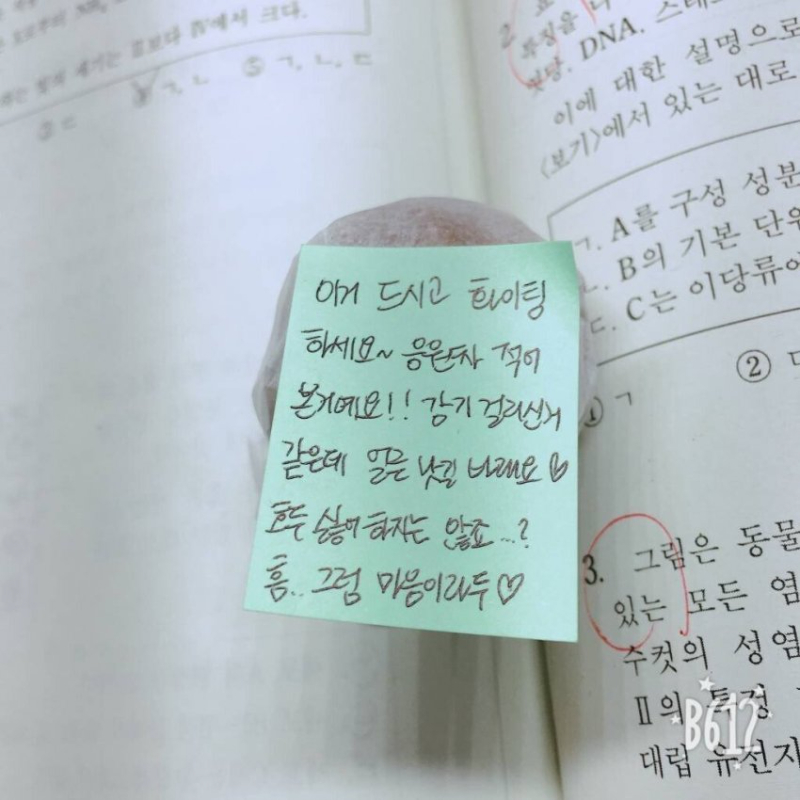 이거 드시고 화이팅
하세요~ 응원차 적어
본거예요!! 감기 걸리신거
같은데 얼른 낫길 바래요♡
호두 싫어하자는 않죠...?
흠.. 그럼 마음이라두♡
보다 Ⅳ에서 크다.
ㄱ, ㄴ ⑤ ㄱ, ㄴ, ㄷ
③ ㄷ
2.
특징을 나
DNA.
이에 대한 설명으로
<보기>에서 있는 대로
ㄱ. A를 구성 성분
ㄴ. B의 기본 단위
ㄷ. C는 이당류이
① ㄱ ②
3. 그림은 동물
있는 모든 염
수컷의 성염
Ⅱ의 특정
대립 유전자
B612